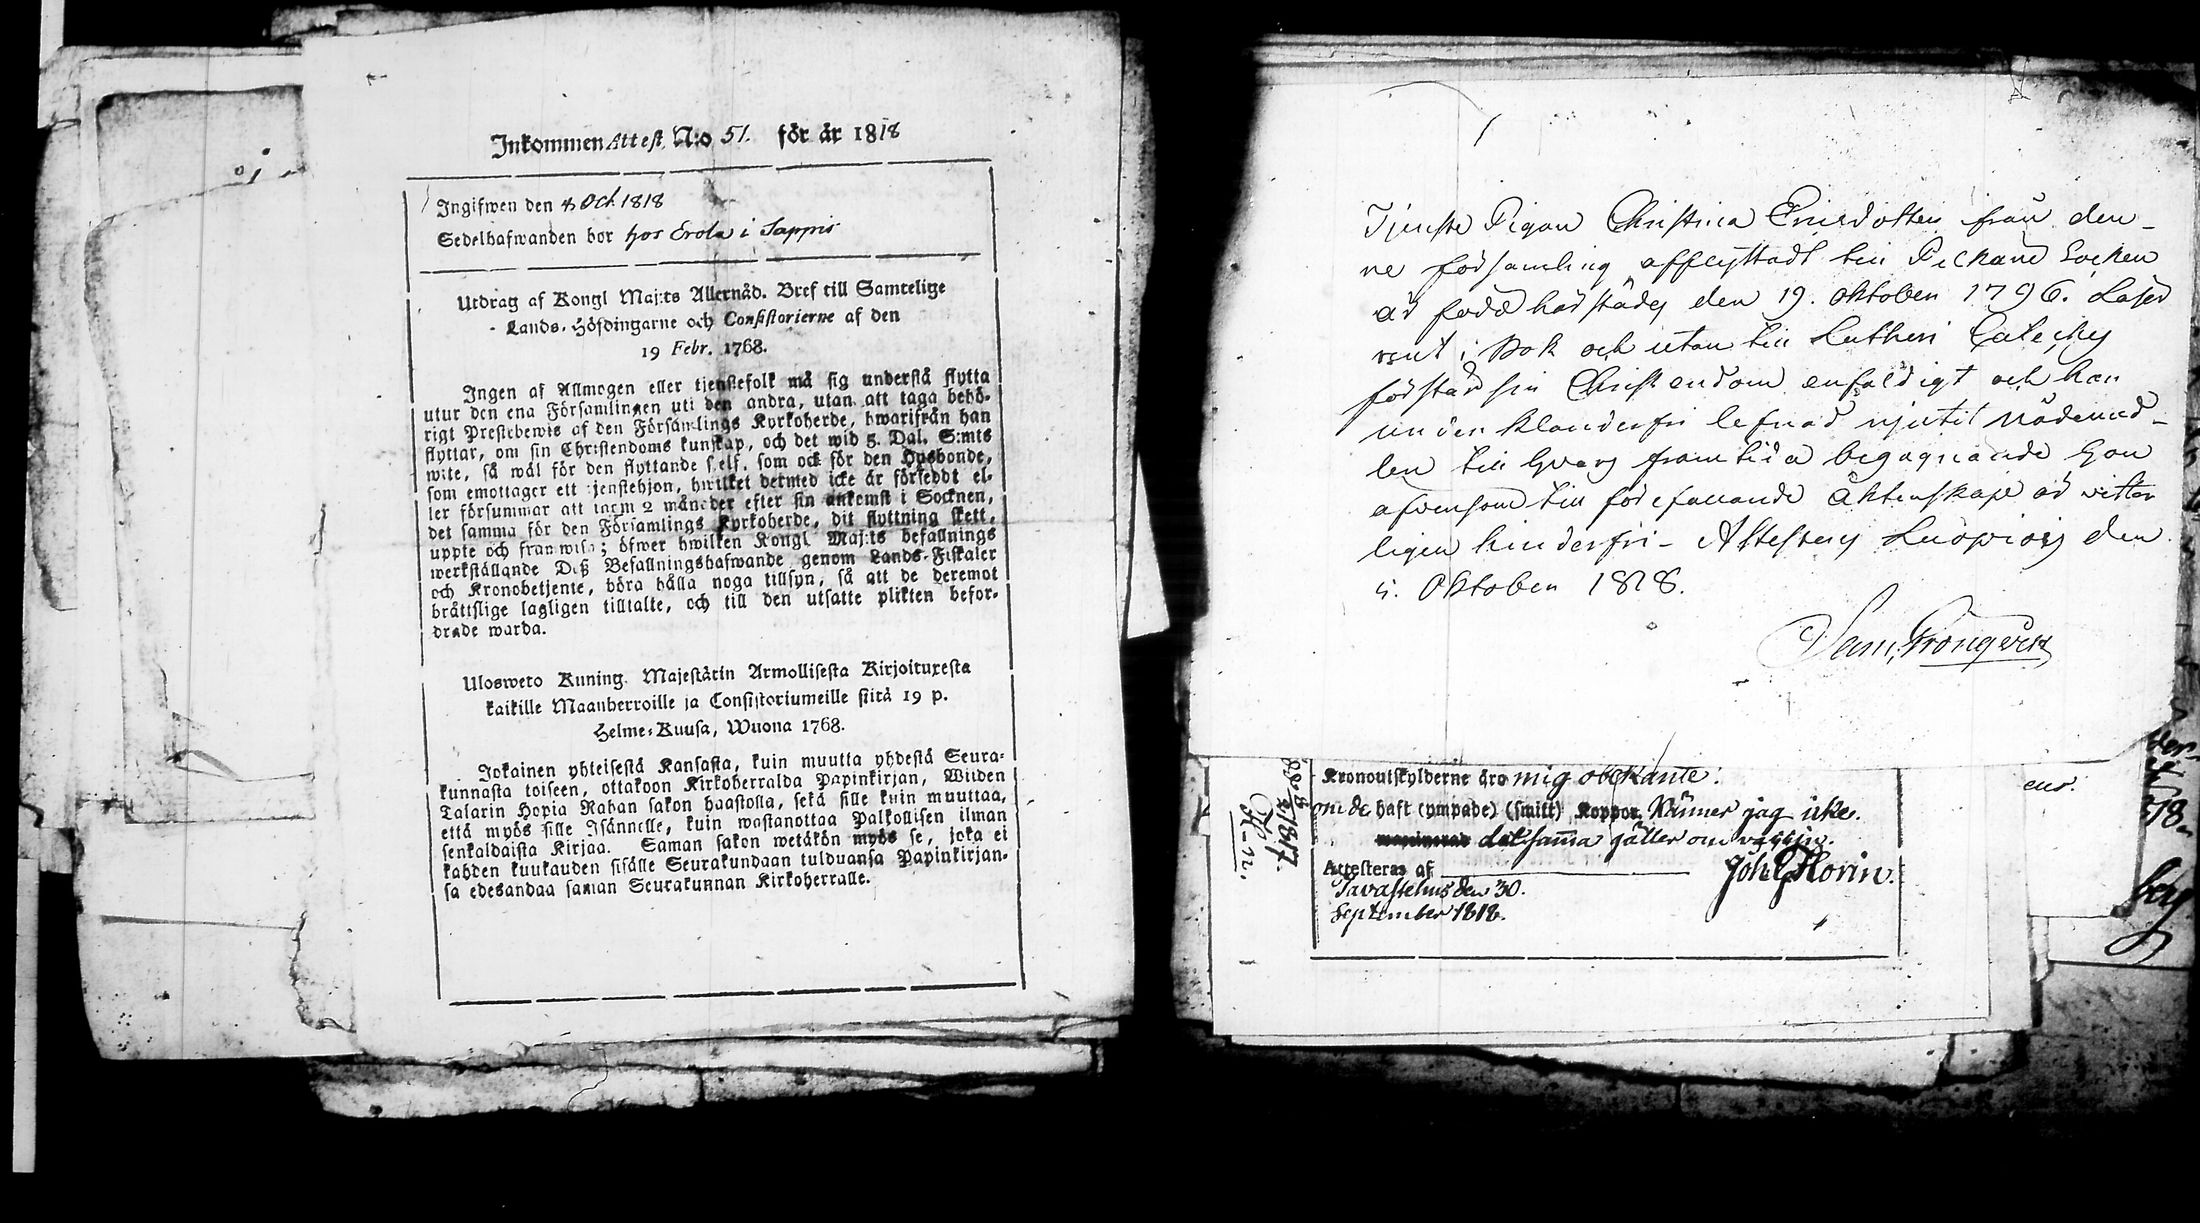 Inkommen Attest N:o 51. för år 1818
Ingifwen den 8 Oct. 1818
Sedelhafwanden bor hos Erola i Sappis
Utdrag af Kongl Maj:ts Allernåd. Bref till Samtelige
Lands-Höfdingarne och Consistorierne af den
19 Febr. 1768.
Ingen af Allmogen eller tjenstefolk må sig understå flytta
utur den ena Församlingen uti den andra, utan att taga behö-
rigt Prestebewis af den Församlings Kyrkoherde, hwarifrån han
flyttar, om sin Christendoms kunskap, och det wid 5. Dal. S:mts
wite, så wäl för den flyttande self, som ock för den Husbonde,
som emottager ett tjenstehjon, hwilket dermed icke är försedt el-
ler försummar att inom 2 månader efter sin ankomst i Socknen,
det samma för den Församlings Kyrkoherde, dit flyttning skett,
uppte och framwisa; öfwer hwilken Kongl Maj:ts befallnings
werkställande Deß Befallningshafwande genom Lands-Fiskaler
och Kronobetjente, böra hålla noga tillsyn, så att de deremot
bråttslige lagligen tilltalte, och till den utsatte plikten befor-
drade warda.
Ulosweto Kuning. Majestätin Armollisesta Kirjoituxesta
kaikille Maanherroille ja Consistoriumeille siitä 19 p.
Helme-Kuusa, Wuona 1768.
Jokainen yhteisestä Kansasta, kuin muutta yhdestä Seura-
kunnasta toiseen, ottakoon Kirkoherralda Papinkirjan, Wiiden
Talarin Hopia Rahan sakon haastolla, sekä sille kuin muuttaa,
että myös sille Isännelle, kuin wastanottaa Palkollisen ilman
senkaldaista Kirjaa. Saman sakon wetäkön myös se, joka ei
kahden kuukauden sisälle Seurakundaan tulduansa Papinkirjan-
sa edesandaa saman Seurakunnan Kirkoherralle.
Tjenste Pigan Christina Ericsdotter från den-
ne församling afflyttadt till Pelkäne Socken
är född härstädes den 19. Oktober 1796. Läser
rent i Bok och utan till Lutheri Cateches
förstår sin Christendom enfaldigt och har
under klanderfri lefnad njutit nådemed-
len till hvars framtida begagnande hon
äfvensom till förefallande äktenskap är vitter
ligen hinderfri - Attesteras Luopiois den
5. Oktober 1818.
Sam. Krongvist
Kronoutskylderne äro mig obekante.
om de haft (ympade) (smitt) Koppor känner jag icke.
detsamma gäller om vaccin.
Attesteras af Joh. G. Florin.
Tavastehus den 30.
September 1818.
1817.
ens.
berg